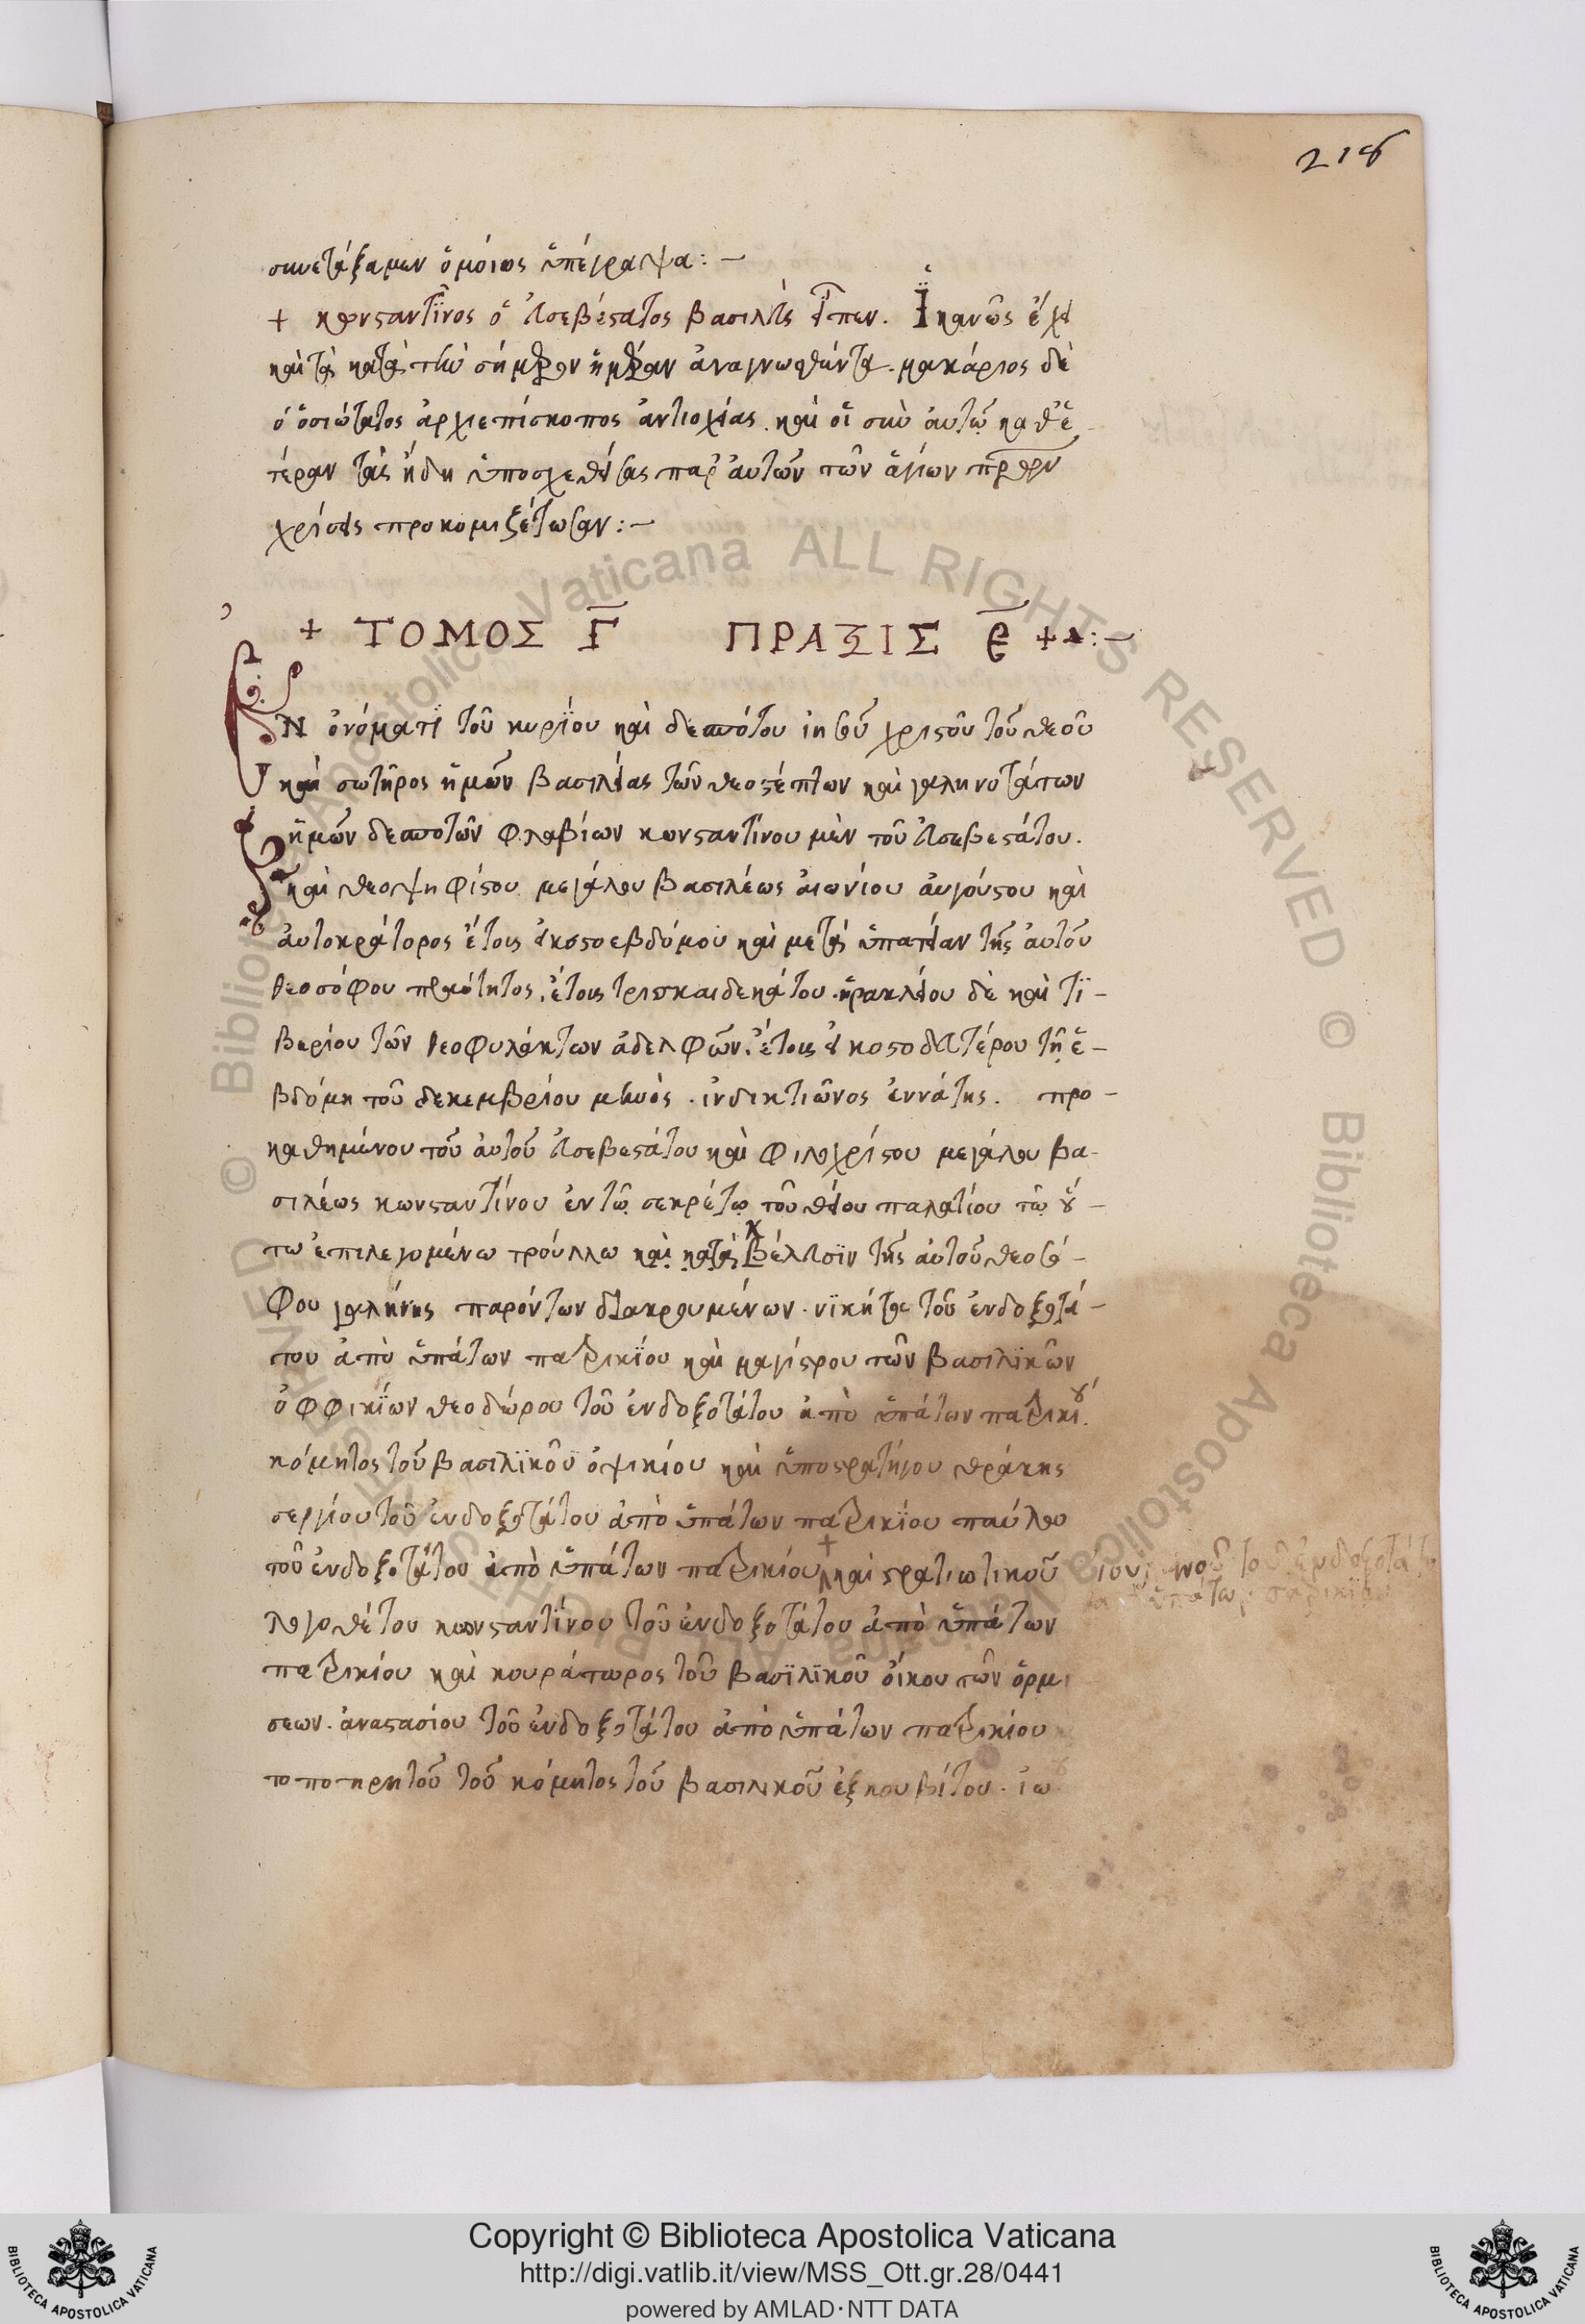 218
συνετάξαμεν ὁμοίως ὑπέγραψα:—
+ κωνσταντῖνος ὁ εὐσεβέστατος βασιλεὺς εἶπεν. Ἱκανῶς ἔχει
καὶ τὰ κατὰ τὴν σήμερον ἡμέραν ἀναγνωσθέντα. μακάριος δὲ
ὁ ὁσιώτατος ἀρχιεπίσκοπος ἀντιοχείας. καὶ οἱ σὺν αὐτῷ καθ' ἑ-
τέραν τὰς ἤδη ὑποσχεθείσας παρ' αὐτῶν τῶν ἁγίων πρων
χρήσεις προκομιζέτωσαν:—
+ ΤΟΜΟΣ Γ ΠΡΑΞΙΣ
ΕΝ ὀνόματι τοῦ κυρίου καὶ δεσπότου ἰησοῦ χριστοῦ τοῦ θεοῦ
καὶ σωτῆρος ἡμῶν βασιλείας τῶν θεοστέπτων καὶ γαληνοτάτων
ἡμῶν δεσποτῶν φλαβίων κωνσταντίνου μὲν τοῦ εὐσεβεστάτου.
καὶ θεοψηφίστου μεγάλου βασιλέως αἰωνίου αὐγούστου καὶ
αὐτοκράτορος ἔτους εἰκοστοεβδόμου καὶ μετὰ ὑπατείαν τῆς αὐτοῦ
θεοσόφου πραότητος. ἔτους τρισκαιδεκάτου. ἡρακλείου δὲ καὶ τι-
βερίου τῶν θεοφυλάκτων ἀδελφῶν. ἔτους εἰκοστοδευτέρου τῇ ἑ-
βδόμῃ τοῦ δεκεμβρίου μηνὸς. ἰνδικτιῶνος ἐννάτης. προ-
καθημένου τοῦ αὐτοῦ εὐσεβεστάτου καὶ φιλοχρίστου μεγάλου βα-
σιλέως κωνσταντίνου ἐν τῷ σεκρέτῳ τοῦ θείου παλατίου τῷ οὕ-
τω ἐπιλεγομένω τρούλλω καὶ κατὰ κέλευσιν τῆς αὐτοῦ θεοσό-
φου γαλήνης παρόντων διακρουμένων. νικήτα τοῦ ἐνδοξοτά-
του ἀπὸ ὑπάτων πατρικίου καὶ μαγίστρου τῶν βασιλικῶν
ὀφφικίων θεοδώρου τοῦ ἐνδοξοτάτου ἀπὸ ὑπάτων πατρικίου.
κόμητος τοῦ βασιλικοῦ ὀψικίου καὶ ὑποστρατήγου θράκης
σεργίου τοῦ ἐνδοξοτάτου ἀπὸ ὑπάτων πατρικίου παύλου
τοῦ ἐνδοξοτάτου ἀπὸ ὑπάτων πατρικίου + καὶ στρατιωτικοῦ
τοῦ ἐνδοξοτάτου
ὑπάτων πατρικίου
λογοθέτου κωνσταντίνου τοῦ ἐνδοξοτάτου ἀπὸ ὑπάτων
πατρικίου καὶ κουράτωρος τοῦ βασιλικοῦ οἴκου τῶν ὁρμι
σεων. ἀναστασίου τοῦ ἐνδοξοτάτου ἀπὸ ὑπάτων πατρικίου
τοποτηρητοῦ τοῦ κόμητος τοῦ βασιλικοῦ ἐξκουβίτου. ἰω
Copyright © Biblioteca Apostolica Vaticana
http://digi.vatlib.it/view/MSS_Ott.gr.28/0441
powered by AMLAD·NTT DATA